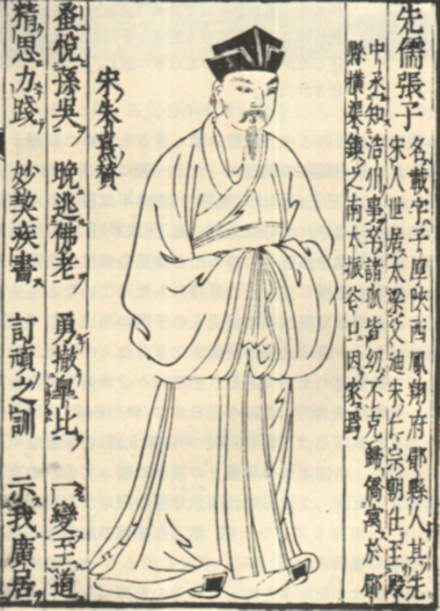 先儒張子
名載字子厚陝西鳳翔府郿縣人其先
宋人世居太梁父迪宋仁宗朝仕至殿
中丞知涪州事卒諸孤皆幼不克歸僑寓於郿
縣橫渠鎮之南太振谷口因家焉
宋朱熹贊
蚤悅孫吳 晚逃佛老 勇撤皐比 一變至道
精思力踐 妙契疾書 訂頑之訓 示我廣居